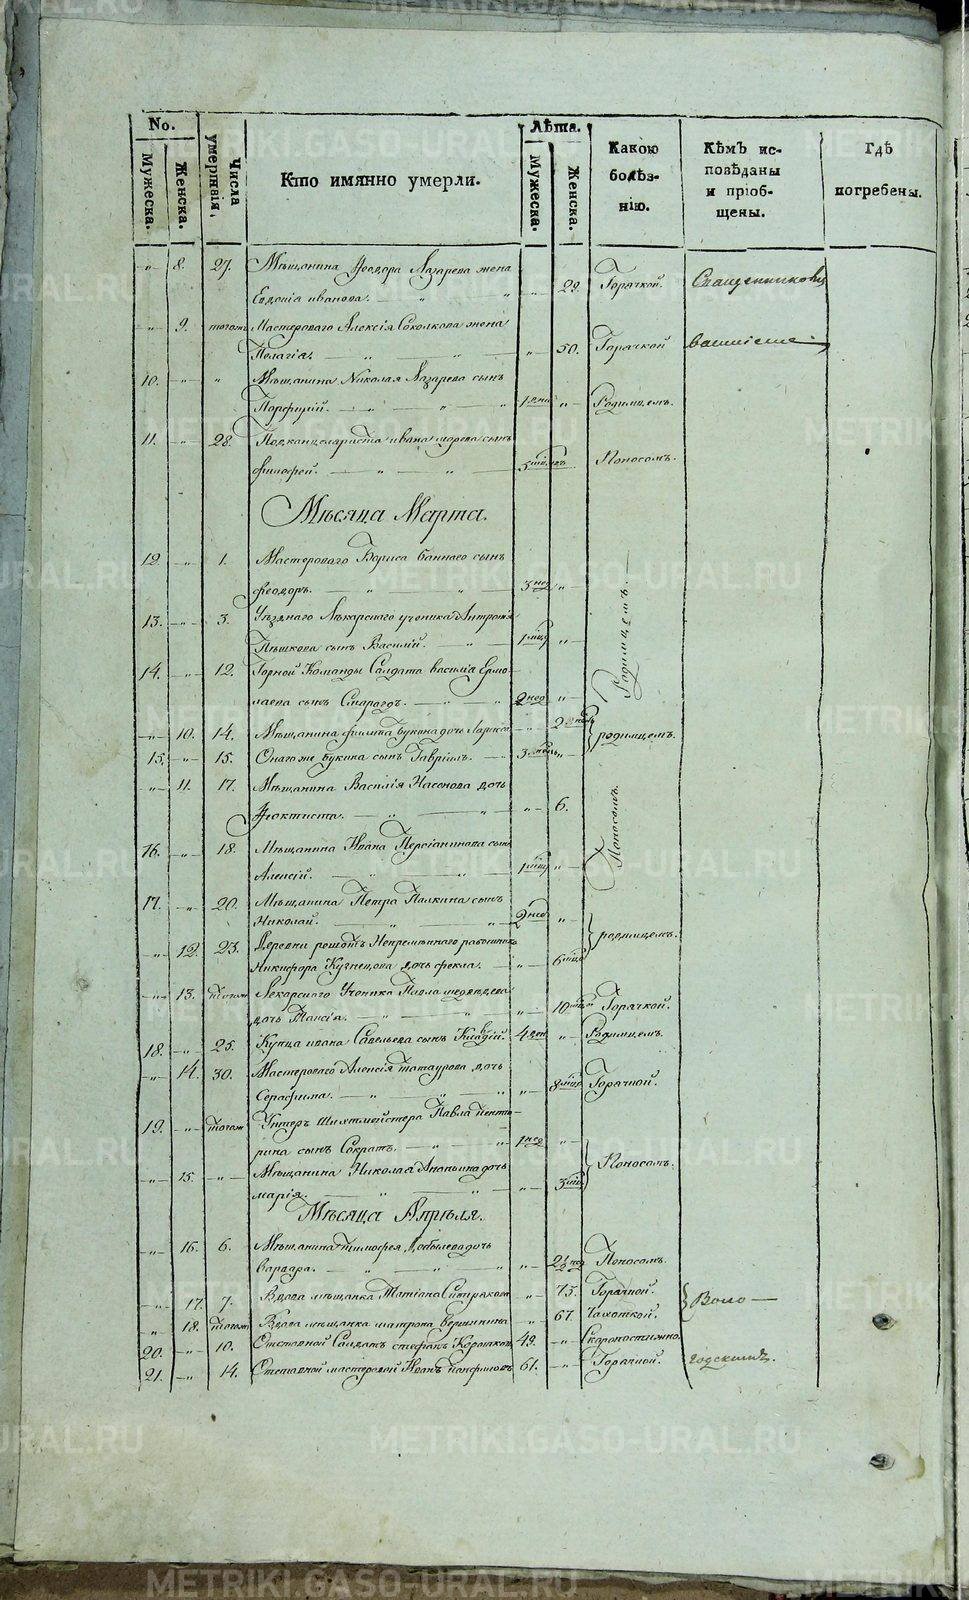 No.
Мужеска.
Женска.
Числа умертвія.
Кто имянно умерли.
Лѣта.
Мужеска.
Женска.
Какою болѣз-нію.
Кѣмъ ис-повѣданы и пріоб-щены.
Гдѣ погребены.
" 8. 27. Мѣщанина Ѳеодора Лазарева жена
Евдокія иванова. — " — " " — 29. Горячкой. Священникомъ
" 9. тогож Мастероваго Алексія Соколкова жена
Пелагія. " " — " — 50. Горячкой
10. — " — " Мѣщанина Николая Лазарева сынъ
Порфирій. — " — " — " 1 дни " — Родимцемъ.
11. " — 28. Подканцеляриста ивана сынъ
филофей. — " — " — 3 Поносомъ.
Мѣсяца Марта.
12. — " — 1. Мастероваго Бориса сынъ
феодоръ. — " — " — 3 нед " —
13. — " — 3. Уѣзднаго Лѣкарскаго ученика
Пѣшкова сынъ Василій. — " — 1 мца " —
Родимцемъ.
14. — " — 12. Горной Команды Салдата василія Ермо-
лаева сынъ Смарагдъ. — " — " 2 нед " —
" — 10. 14. Мѣщанина букина дочь Лариса " — 2 родимцемъ.
15. — " — 15. Онагоже букина сынъ Гавріилъ. — 3 " —
" — 11. 17. Мѣщанина Василія Насонова дочь
Ѳеоктиста. — " — " — " — 6.
Поносомъ.
16. — " — 18. Мѣщанина Ивана Персіанинова сынъ
Алексій. — " — " — 1 мца " —
17. — " — 20. Мѣщанина Петра Палкина сынъ
Николай. — " — " 2 нед " —
родимцемъ.
" — 12. 23. Деревни решотъ Непремѣннаго работника
Никифора Кузнецова дочь фекла. — " — 6 мцо
" — 13. тогож Лекарскаго Ученика Павла медведева
дочь Таисія. — " — " — 10 Горячкой.
18. — " — 25. Купца ивана Савельева сынъ Клавдій. 4 дни " — Родимцемъ.
" — 14. 30. Мастероваго Алексія татаурова дочь
Серафима. — " — " — " — 8 мцо Горячкой.
19. — " — тогож Унтеръ Шихтмейстера Павла
рина сынъ Сократъ. — " — " 1 нед " —
Поносомъ.
" — 15. — " — Мѣщанина Николая Ананьина дочь
марія. — " — " — " — 3 мцо
Мѣсяца Апрѣля.
" — 16. 6. Мѣщанина тимофея дочь
варвара. — " — " — " — 2½ нед Поносомъ.
" — 17. 7. Вдова мѣщанка Татіана " — 75. Горячкой.
Воло —
" 18. тогож Вдова мѣщанка матрона вершинина " 67. Чахоткой.
20. — " — 10. Отставной Салдатъ стефанъ Коротковъ 49. " — Скоропостижно.
21. — " — 14. Отставной мастеровой Иванъ панфиловъ 61. " — Горячкой.
годскимъ.
METRIKI.GASO-URAL.RU